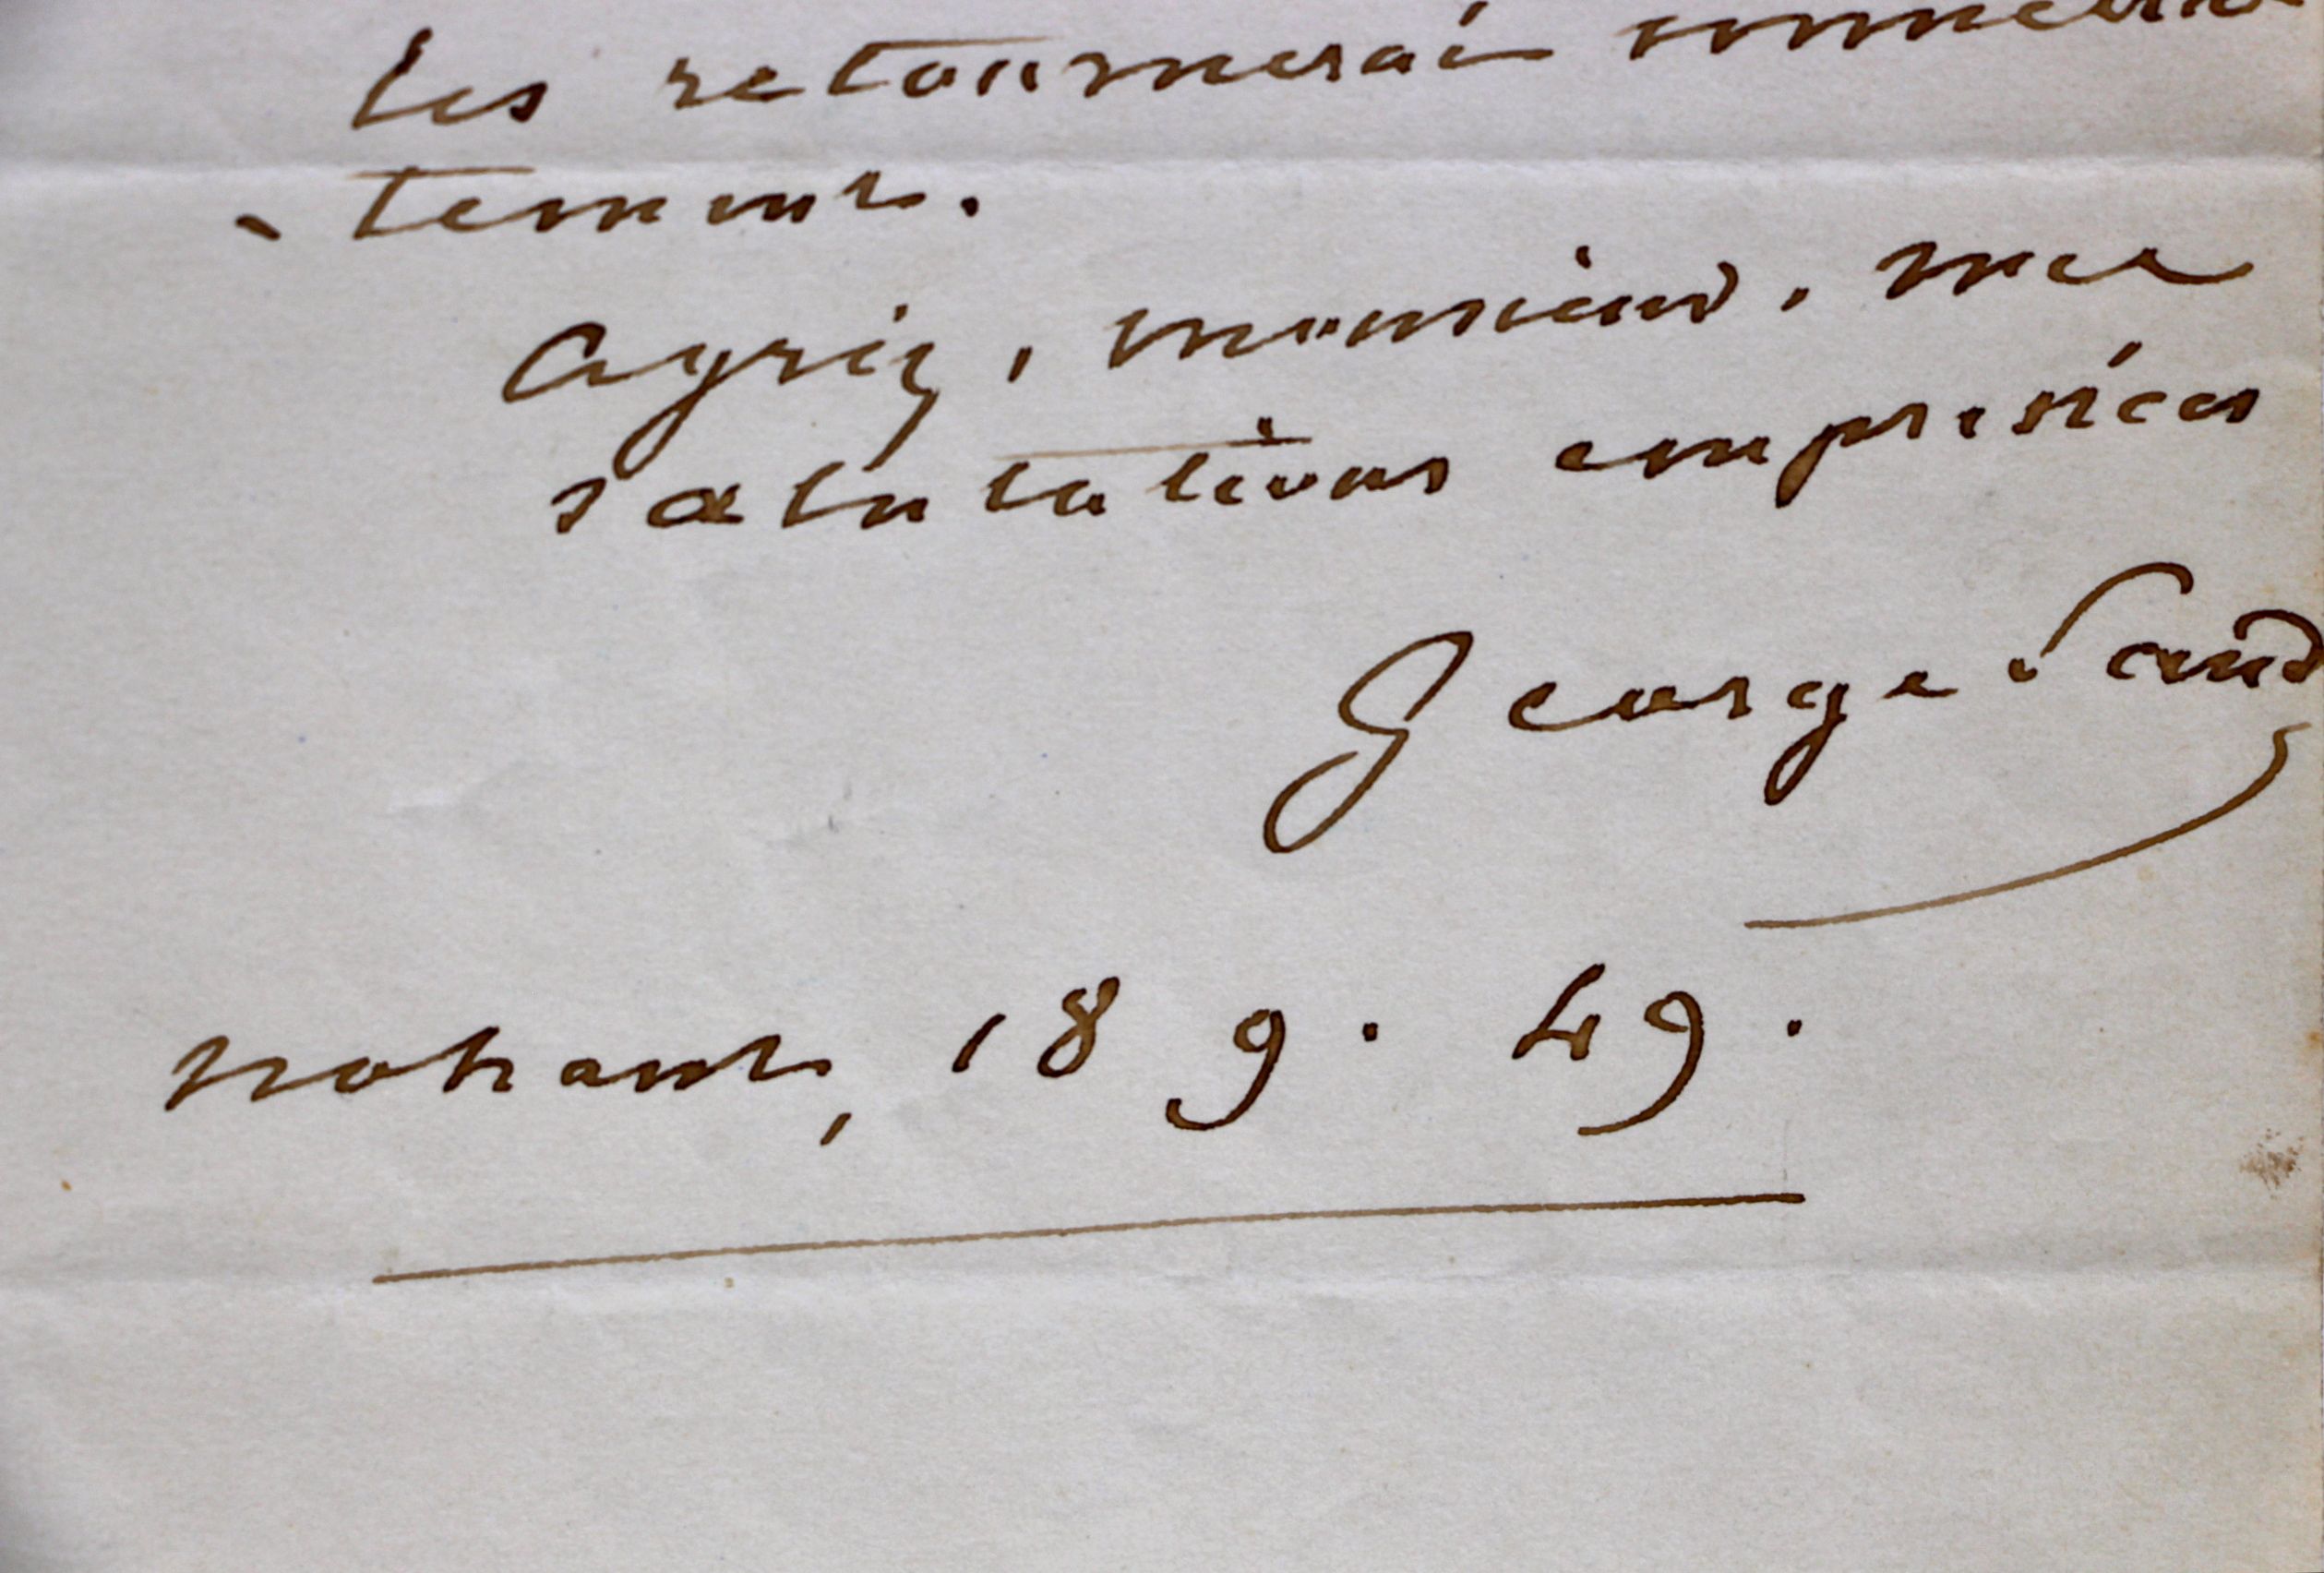 les retournerai immédia
-tement.
Agréez, monsieur, mes
salutations empressées
George Sand
nohant, 18 9. 49.